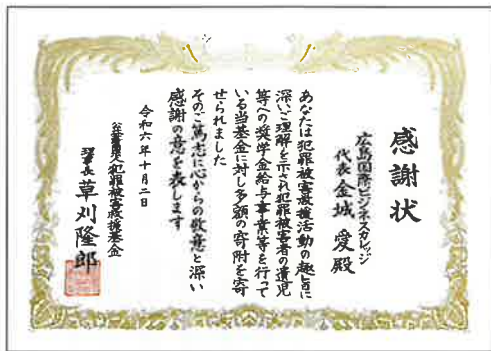 感謝状
広島国際ビジネスカレッジ
代表 金城 愛 殿
あなたは犯罪被害救援活動の趣旨に
深いご理解を示され犯罪被害者の遺児
等への奨学金給与事業等を行って
いる当基金に対し多額の寄附を寄
せられました
そのご篤志に心からの敬意と深い
感謝の意を表します
令和六年十月二日
公益財団法人犯罪被害救援基金
理事長 草刈隆郎